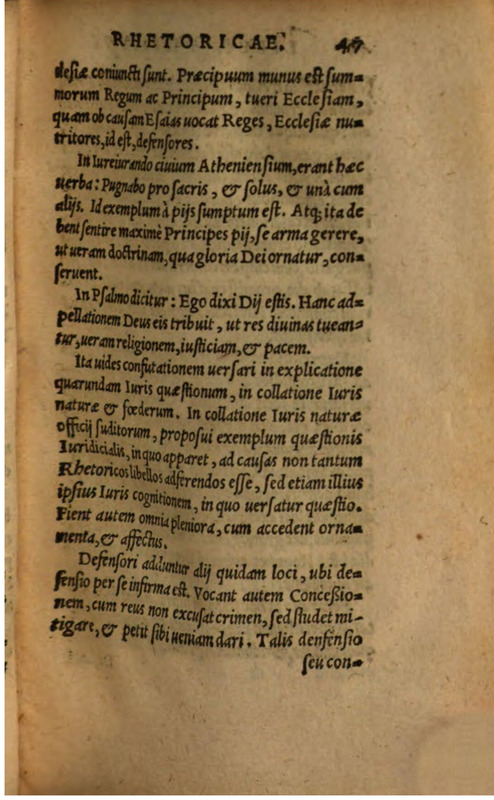 RHETORICAE. 47
desiæ coniuncti sunt. Præcipuum munus est sum=
morum Regum ac Principum, tueri Ecclesiam,
quam ob causam Esaias uocat Reges, Ecclesiæ nu=
tritores, id est, defensores.
In Iureiurando ciuium Atheniensium, erant hæc
uerba: Pugnabo pro sacris, & solus, & unà cum
alijs. Id exemplum à pijs sumptum est. Atq; ita de
bent sentire maximè Principes pij, se arma gerere,
ut ueram doctrinam, qua gloria Dei ornatur, con=
seruent.
In Psalmo dicitur: Ego dixi Dij estis. Hanc ad=
pellationem Deus eis tribuit, ut res diuinas tuean=
tur, ueram religionem, iusticiam, & pacem.
Ita uides confutationem uersari in explicatione
quarundam Iuris quæstionum, in collatione Iuris
naturæ & fœderum. In collatione Iuris naturæ
officij suditorum, proposui exemplum quæstionis
Iuridicialis, in quo apparet, ad causas non tantum
Rhetoricos libellos adferendos esse, sed etiam illius
ipsius Iuris cognitionem, in quo uersatur quæstio.
Fient autem omnia pleniora, cum accedent orna=
menta, & affectus.
Defensori adduntur alij quidam loci, ubi de=
fensio per se infirma est. Vocant autem Concessio=
nem, cum reus non excusat crimen, sed studet mi=
tigare, & petit sibi ueniam dari. Talis denfensio
seu con=